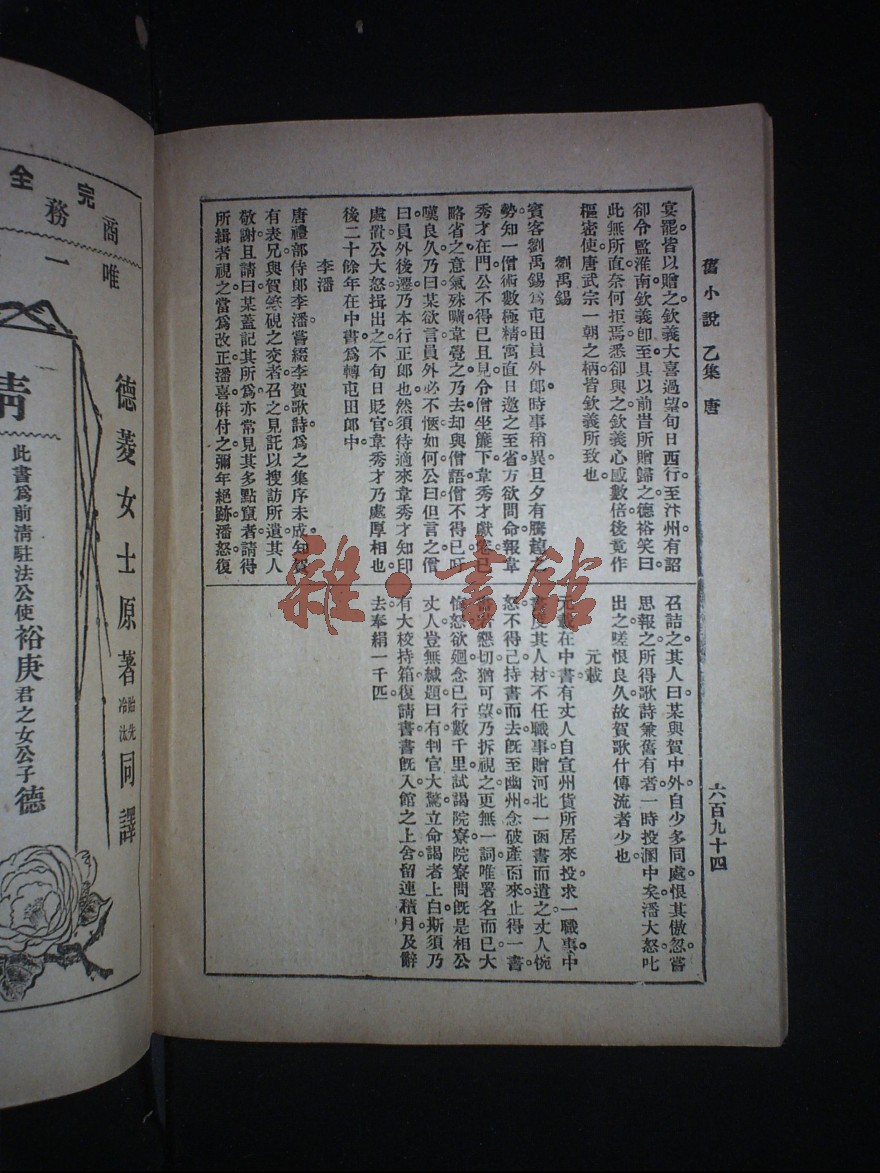 舊小說 乙集 唐
六百九十四
宴罷皆以贈之欽義大喜過望旬日西行至汴州有詔
卻令監淮南欽義卽至具以前昔所贈歸之德裕笑曰
此無所直奈何拒焉悉卻與之欽義心感數倍後竟作
樞密使唐武宗一朝之柄皆欽義所致也
劉禹錫
賓客劉禹錫爲屯田員外郎時事稍異旦夕有騰趠之
勢知一僧術數極精寓直日邀之至省方欲問命報韋
秀才在門公不得已且見令僧坐簾下韋秀才獻卷已
略省之意氣殊曠韋覺之乃去却與僧語僧不得已吁
嘆良久乃曰某欲言員外必不愜如何公曰但言之僧
曰員外後遷乃本行正郎也然須待適來韋秀才知印
處置公大怒揖出之不旬日貶官韋秀才乃處厚相也
後二十餘年在中書爲轉屯田郎中
李潘
唐禮部侍郎李潘嘗綴李賀歌詩爲之集序未成知賀
有表兄與賀筆硯之交者召之見託以搜訪所遺其人
敬謝且請曰某蓋記其所爲亦常見其多點竄者請得
所緝者視之當爲改正潘喜併付之彌年絕跡潘怒復
召詰之其人曰某與賀中外自少多同處恨其傲忽嘗
思報之所得歌詩兼舊有者一時投溷中矣潘大怒叱
出之嗟恨良久故賀歌什傳流者少也
元載
元載在中書有丈人自宣州貨所居來投求一職事中
書度其人材不任職事贈河北一函書而遣之丈人惋
怒不得已持書而去旣至幽州念破產而來止得一書
書若懇切猶可望乃拆視之更無一詞唯署名而已大
悔怒欲廻念已行數千里試謁院寮院寮問旣是相公
丈人豈無緘題曰有判官大驚立命謁者上白斯須乃
有大校持箱復請書書旣入館之上舍留連積月及辭
去奉絹一千匹
雜·書館
完全
商務
唯一
德菱女士原著
貽先
冷汰
同譯
清
此書爲前清駐法公使裕庚君之女公子德